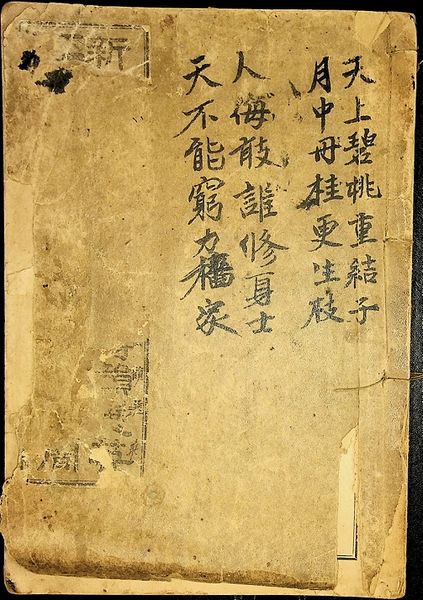 天上碧桃重結子
月中丹桂更生枝
人侮敢誰修身士
天不能窮力穡家
新